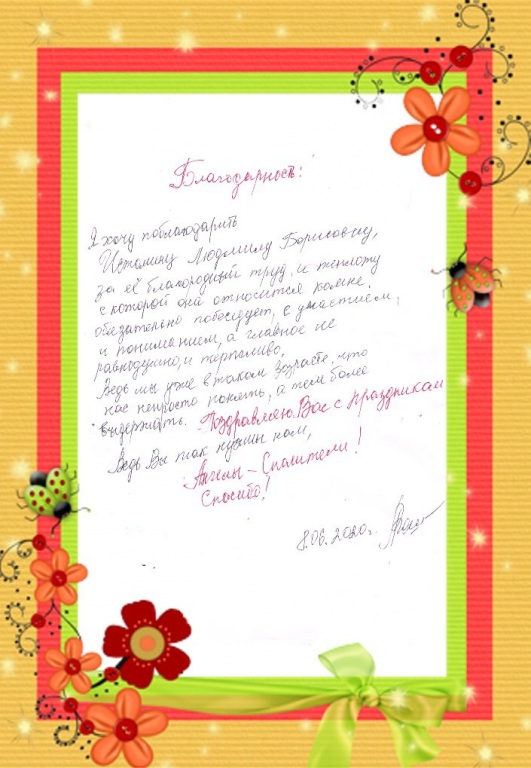 Благодарность!
Я хочу поблагодарить
Истомину Людмилу Борисовну,
за её благородный труд, и теплоту
с которой она относится ко мне.
обязательно побеседует, с участием,
и пониманием, а главное не
равнодушно, и терпеливо,
Ведь мы уже в таком возрасте, что
нас непросто понять, а тем более
выдержать. Поздравляю Вас с праздником
Ведь Вы так нужны нам,
Ангелы - Спасители!
Спасибо!
8.06.2020г.